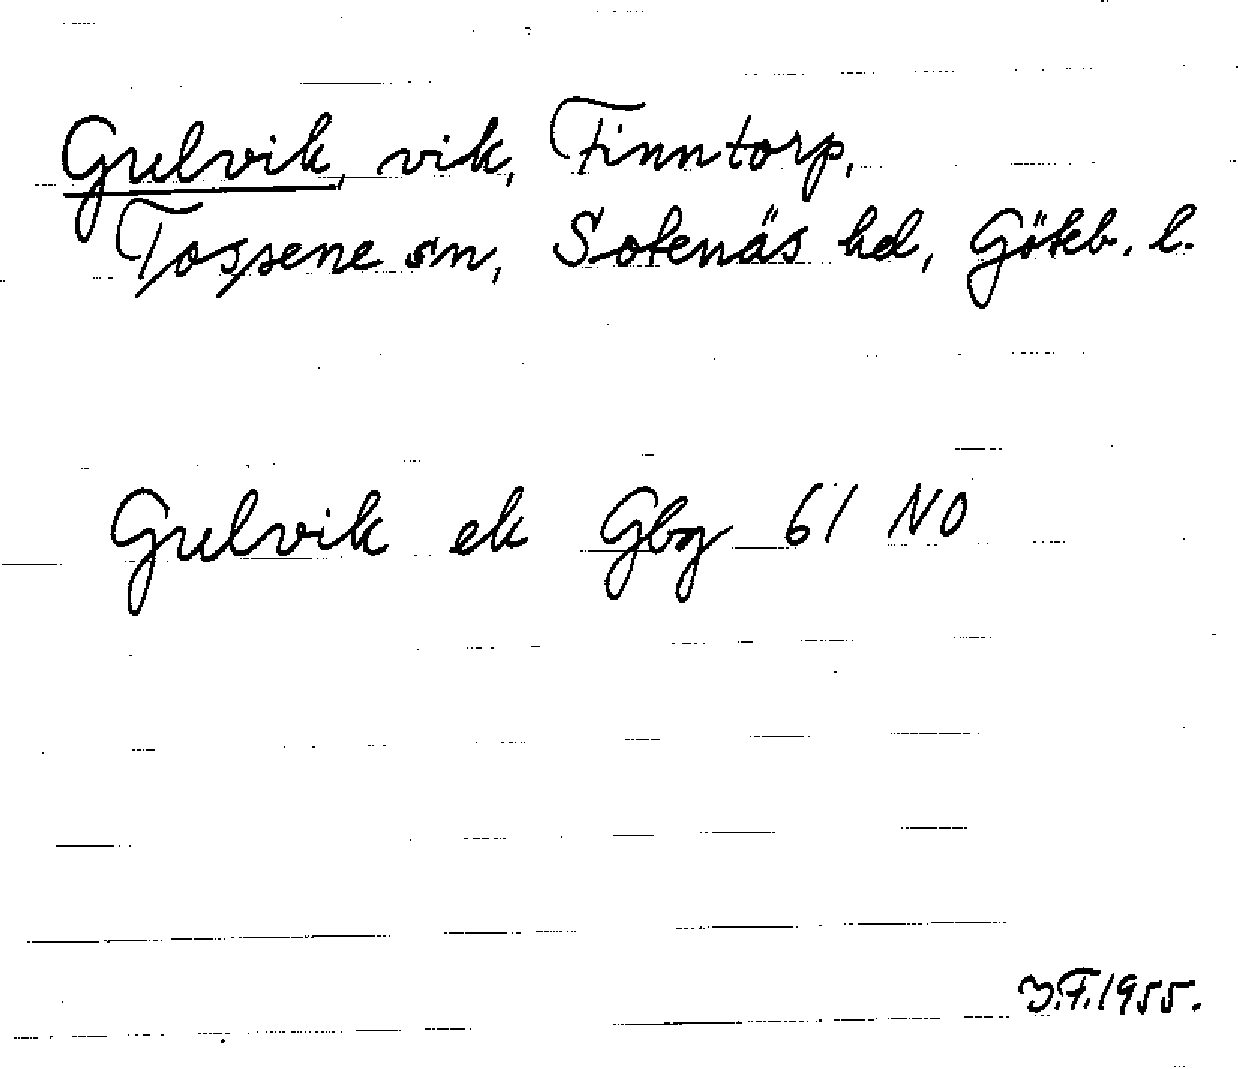 Gulvik, vik, Finntorp,
Tossene sn, Sotenäs hd, Göteb. l.
Gulvik ek Gbg 61 NO
J.F. 1955.